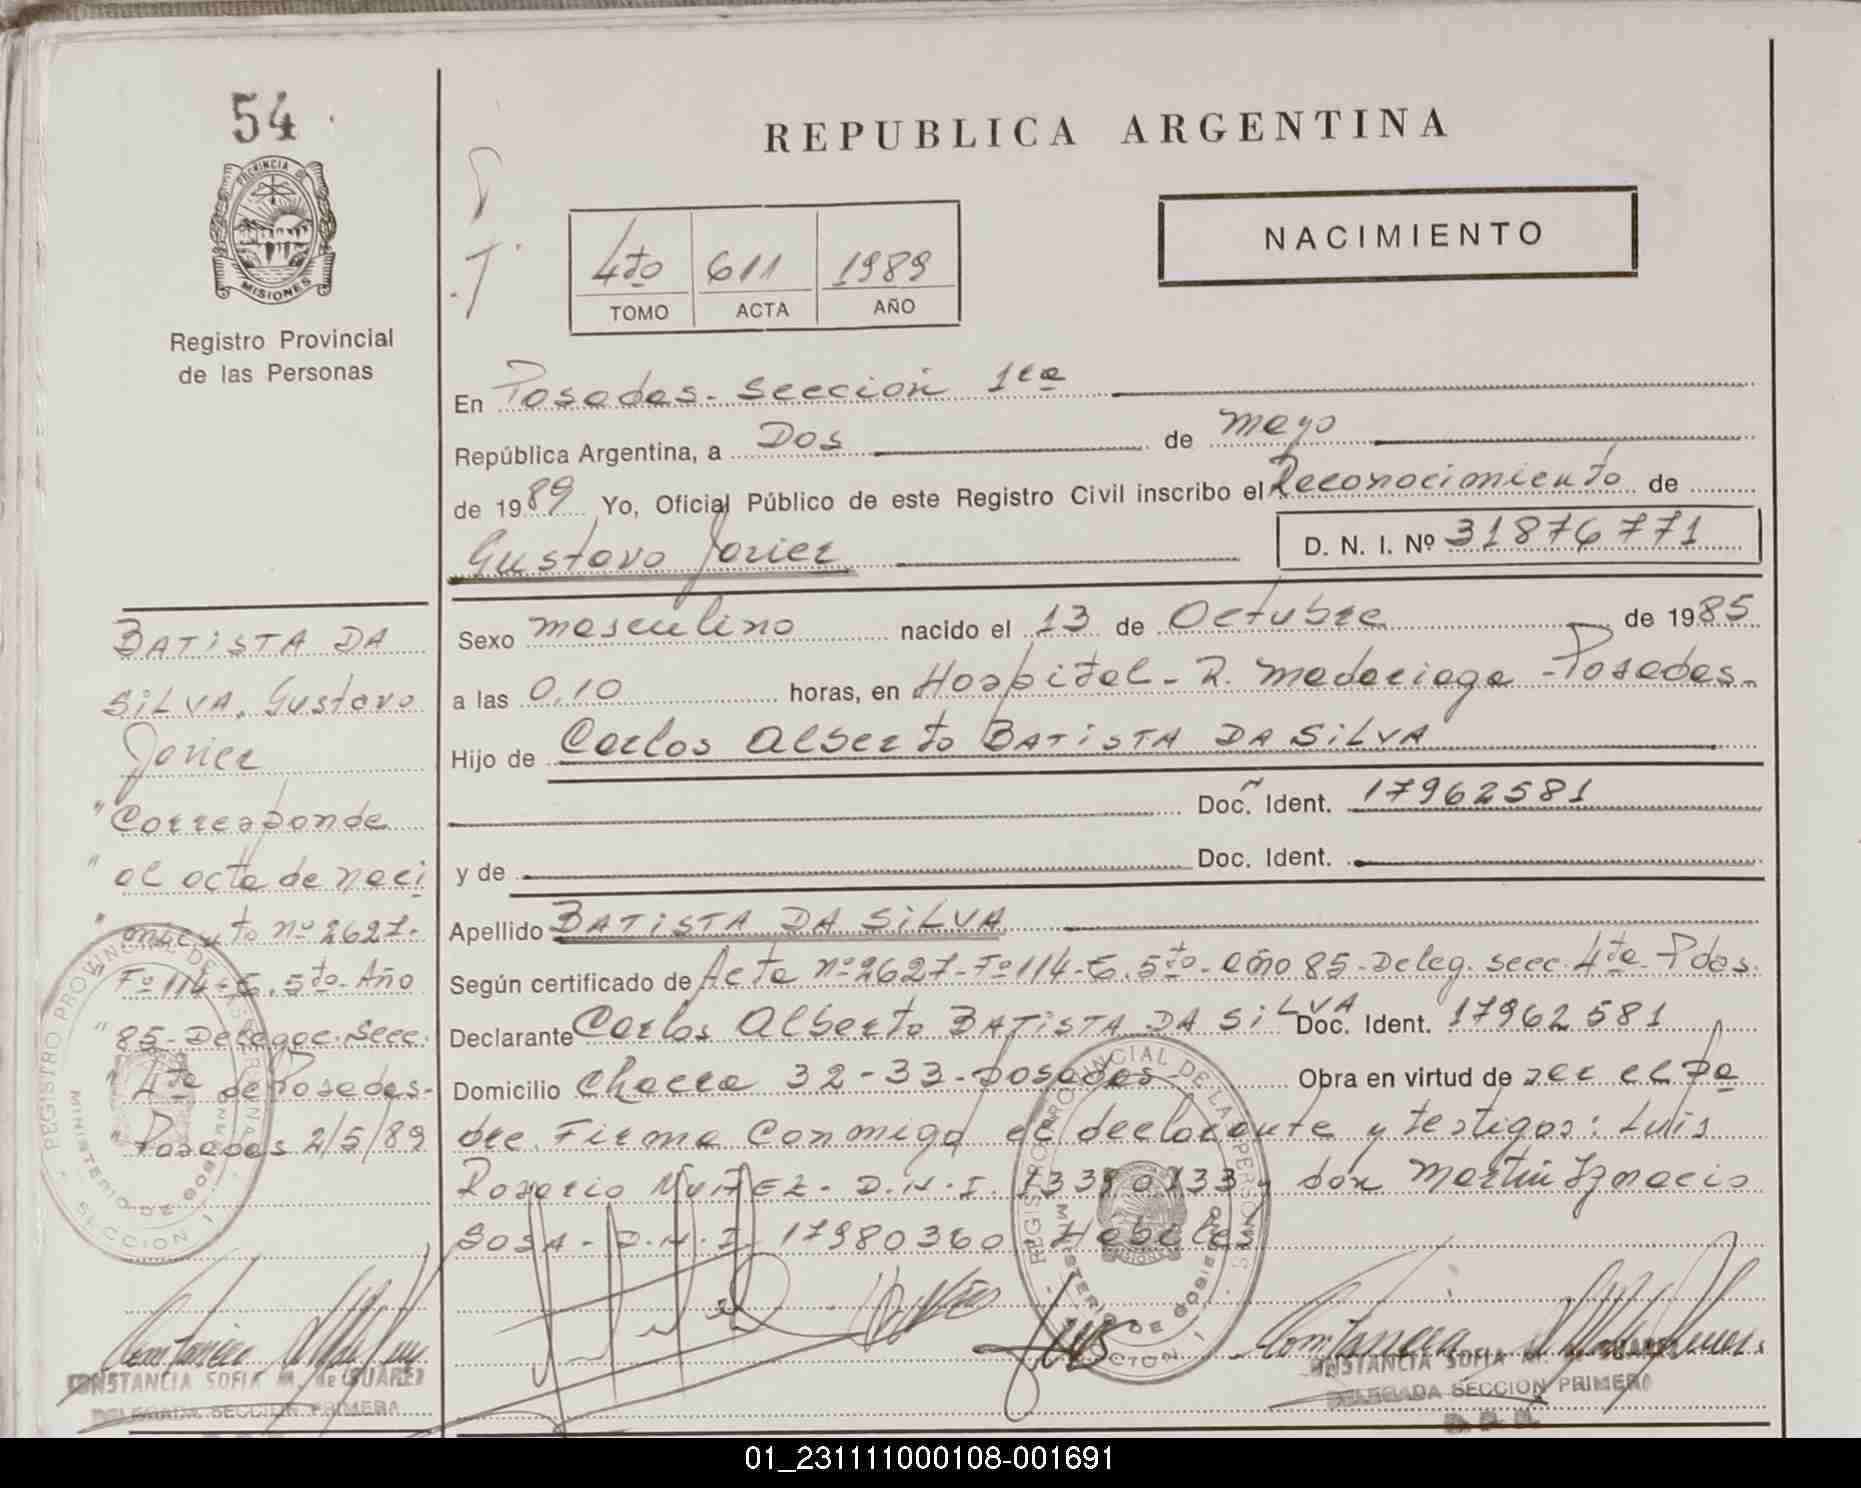 54
PROVINCIA DE
MISIONES
Registro Provincial
de las Personas
REPUBLICA ARGENTINA
NACIMIENTO
4to 611 1989
TOMO ACTA AÑO
En Posadas - Sección 1ra
República Argentina, a Dos de mayo
de 1989 Yo, Oficial Público de este Registro Civil inscribo el Reconocimiento de
Gustavo Javier D. N. I. Nº 31876771
Sexo masculino nacido el 13 de Octubre de 1985
a las 0,10 horas, en Hospital - R. Madariaga - Posadas -
Hijo de Carlos Alberto BATISTA DA SILVA
Doc. Ident. 17962581
y de Doc. Ident.
Apellido BATISTA DA SILVA
Según certificado de Acta nº 2627 - Fº 114 - T. 5to - año 85 - Deleg. secc. 4ta - Pdas.
Declarante Carlos Alberto BATISTA DA SILVA Doc. Ident. 17962581
Domicilio Chacra 32-33 - Posadas Obra en virtud de ser el pa
dre. Firma conmigo el declarante y testigos: Luis
Rosario NUÑEZ - D.N.I. y don Martín Ignacio
SOSA - D.N.I. 17980360 Hábiles
BATISTA DA
SILVA, Gustavo
Javier
"Corresponde
" al acta de naci
" miento nº 2627-
Fº 114 - T. 5to - Año
" 85 - Delegac. Secc.
" 4ta de Posadas -
" Posadas 2/5/89
REGISTRO PROVINCIAL DE LAS PERSONAS
MINISTERIO DE GOBIERNO
SECCION 1
CONSTANCIA SOFIA M. de SUAREZ
DELEGADA SECCION PRIMERA
REGISTRO PROVINCIAL DE LAS PERSONAS
MINISTERIO DE GOBIERNO
SECCION 1
CONSTANCIA SOFIA M. de SUAREZ
DELEGADA SECCION PRIMERA
01_231111000108-001691